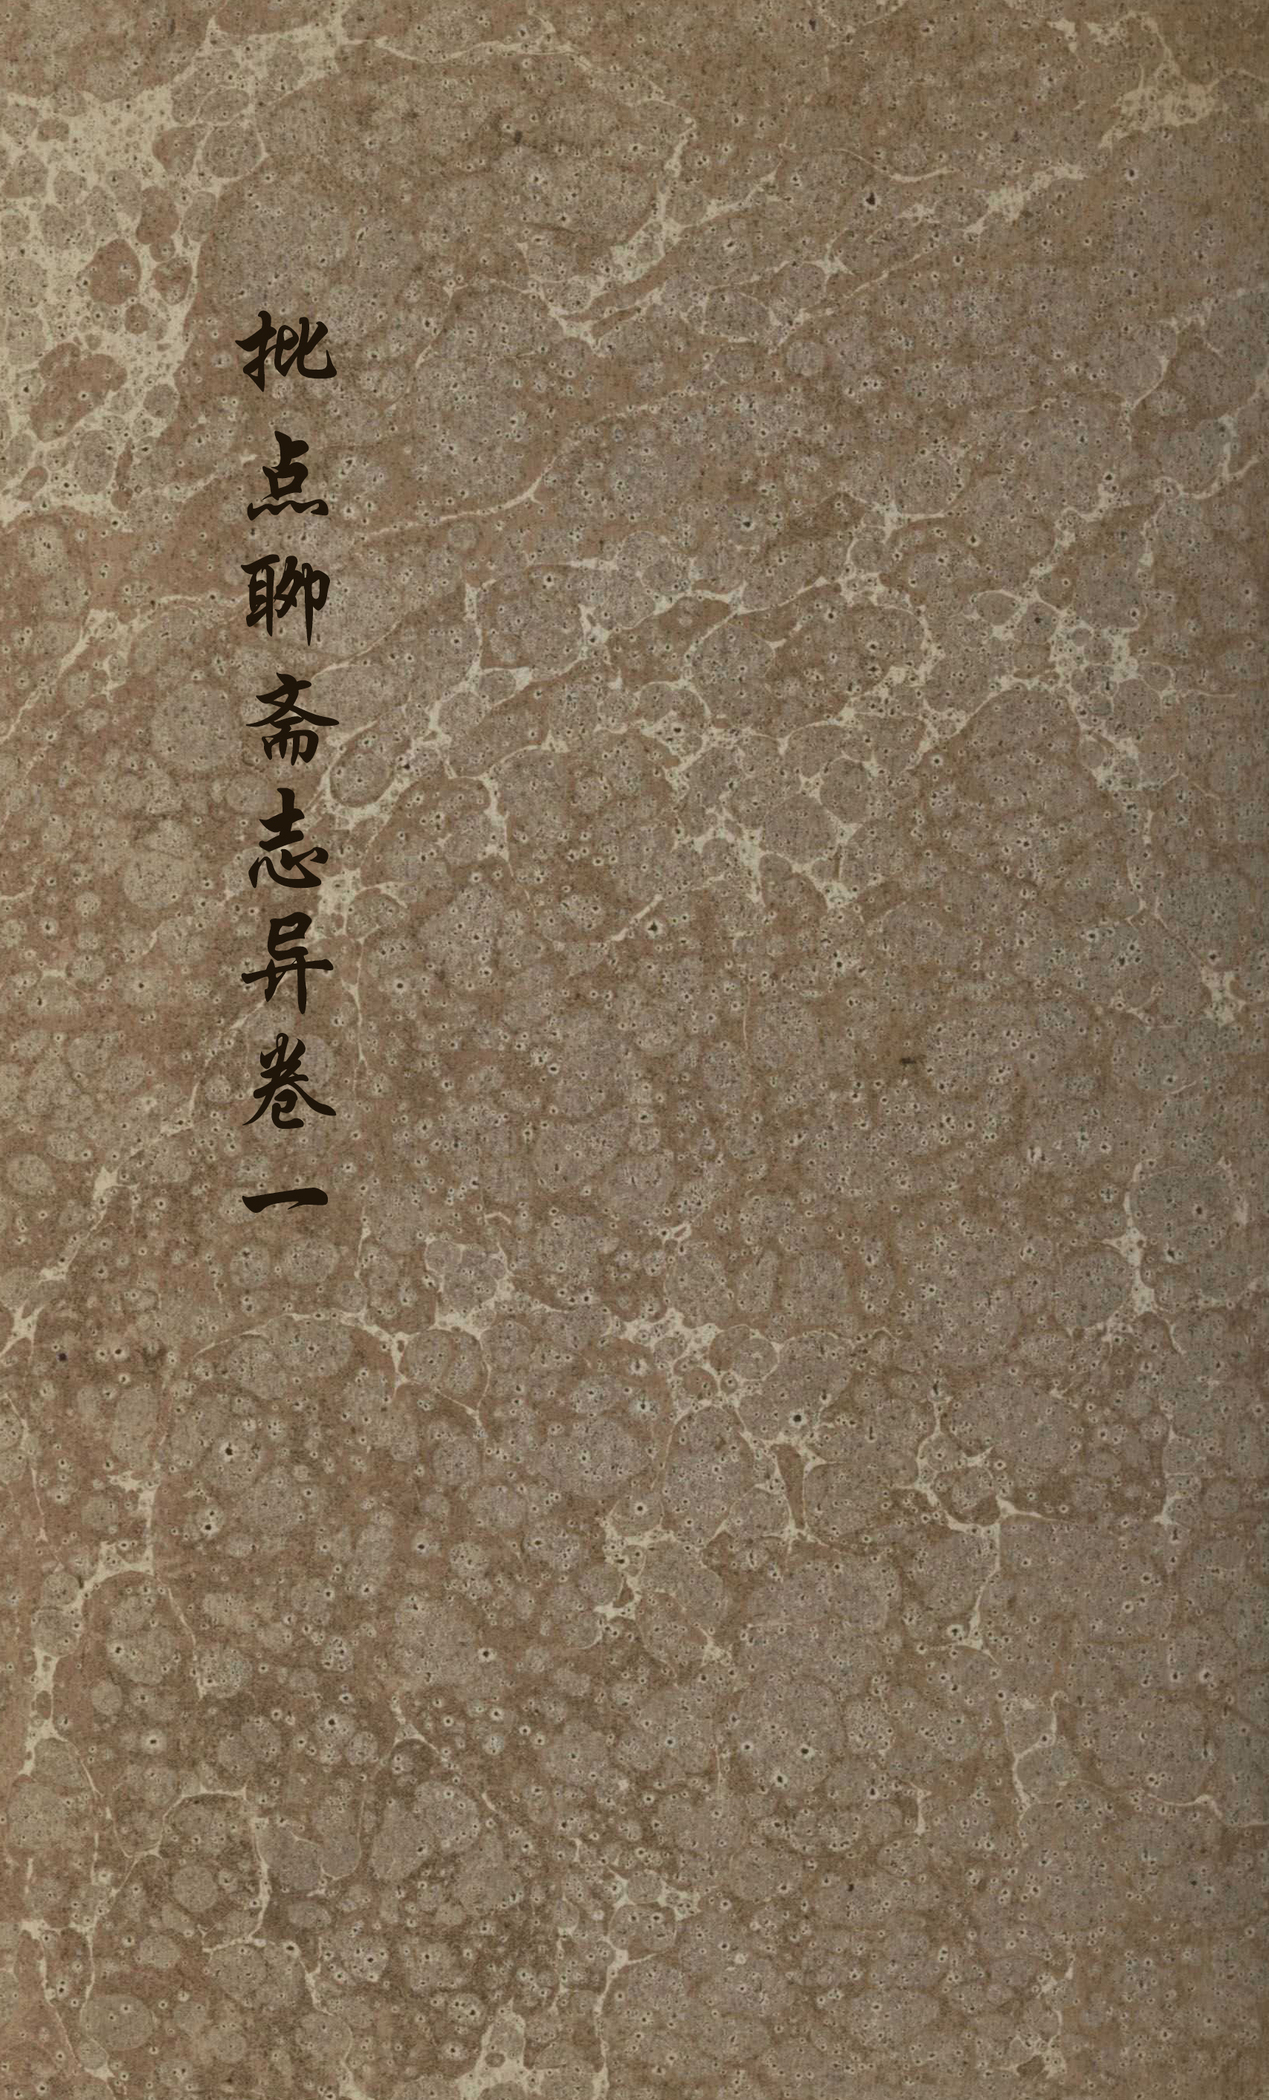 批点聊斋志异卷一